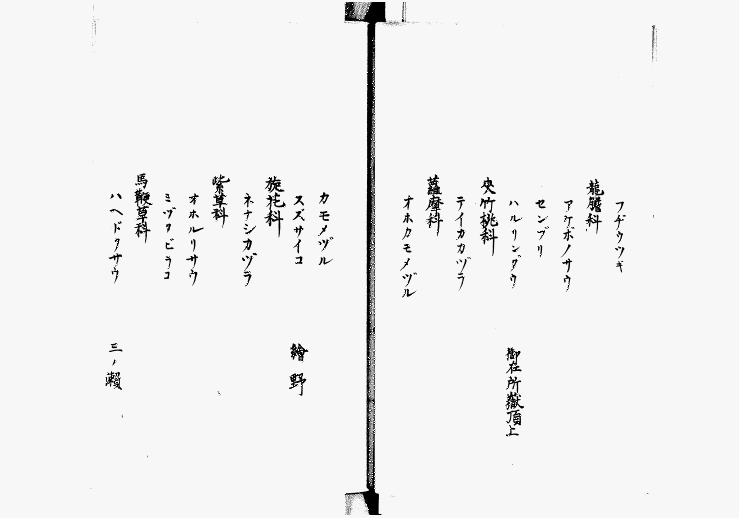 フヂウツギ
龍膽科
アケボノサウ
センブリ
ハルリンダウ 御在所嶽頂上
夾竹桃科
テイカカヅラ
蘿摩科
オホカモメヅル
カモメヅル
スズサイコ 繪野
旋花科
ネナシカヅラ
紫草科
オホルリサウ
ミヅタビラコ
馬鞭草科
ハヘドクサウ 三ノ瀬